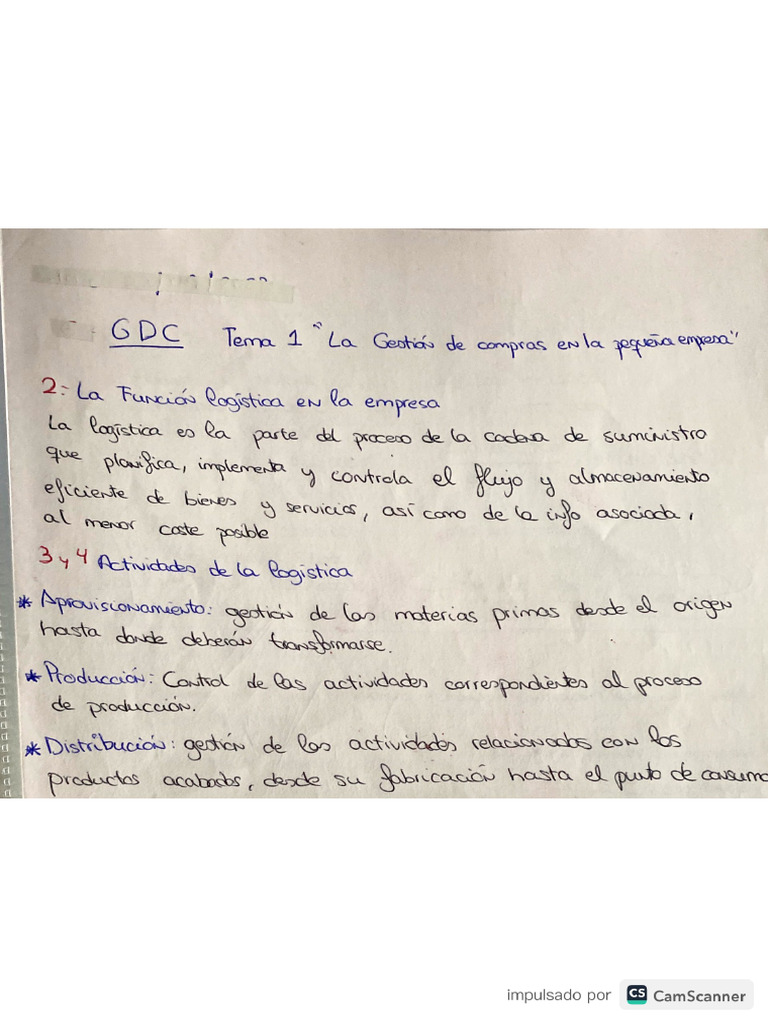 GDC Tema 1 "La Gestión de compras en la pequeña empresa"
2: La Función logística en la empresa
La logística es la parte del proceso de la cadena de suministro
que planifica, implementa y controla el flujo y almacenamiento
eficiente de bienes y servicios, así como de la info asociada,
al menor coste posible
3 y 4 Actividades de la logistica
* Aprovisionamiento: gestión de las materias primas desde el origen
hasta donde deberán transformarse.
* Producción: Control de las actividades correspondientes al proceso
de producción.
* Distribución: gestión de las actividades relacionadas con los
productos acabados, desde su fabricación hasta el punto de consumo
impulsado por CS CamScanner